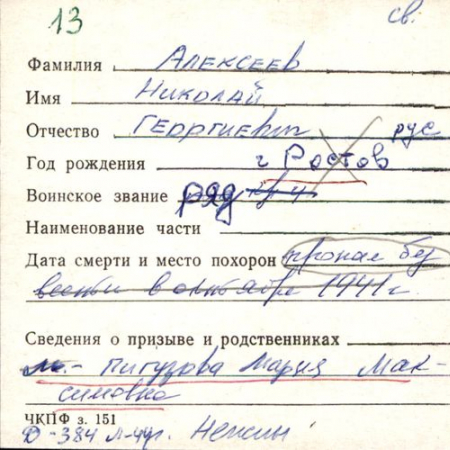 13 св.
Фамилия Алексеев
Имя Николай
Отчество Георгиевич рус
Год рождения г Ростов
Воинское звание ряд
Наименование части
Дата смерти и место похорон пропал без
вести в октябре 1941 г.
Сведения о призыве и родственниках
м.- Пигузова Мария Мак-
симовна
ЧКПФ з. 151
D-384 л-44г.